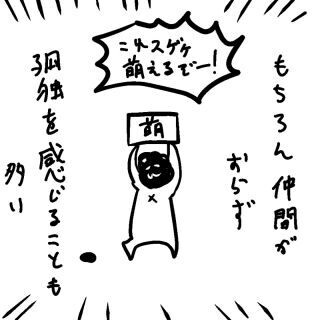 もちろん仲間が
おらず
これスゲケ
萌えるでー!
萌
孤独を感じることも
多い